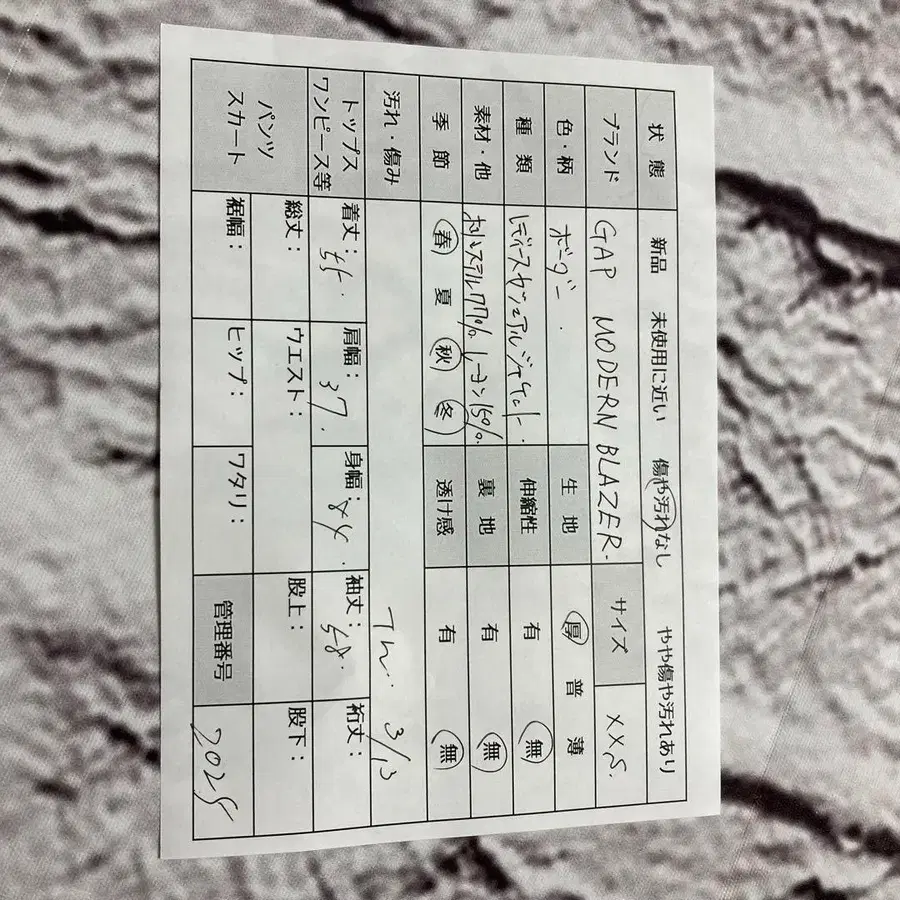 状態 新品 未使用に近い 傷や汚れなし やや傷や汚れあり
ブランド GAP MODERN BLAZER. サイズ XXS.
色・柄 ボーダー. 生地 厚 普 薄
種類 レディースカジュアルジャケット. 伸縮性 有 無
素材・他 ポリエステル77% レーヨン15%. 裏地 有 無
季節 春 夏 秋 冬 透け感 有 無
汚れ・傷み 3/13
トップス
ワンピース等
着丈: 肩幅: 37. 身幅: 44. 袖丈: 58. 裄丈:
パンツ
スカート
総丈: ウエスト: 股上: 股下:
裾幅: ヒップ: ワタリ: 管理番号